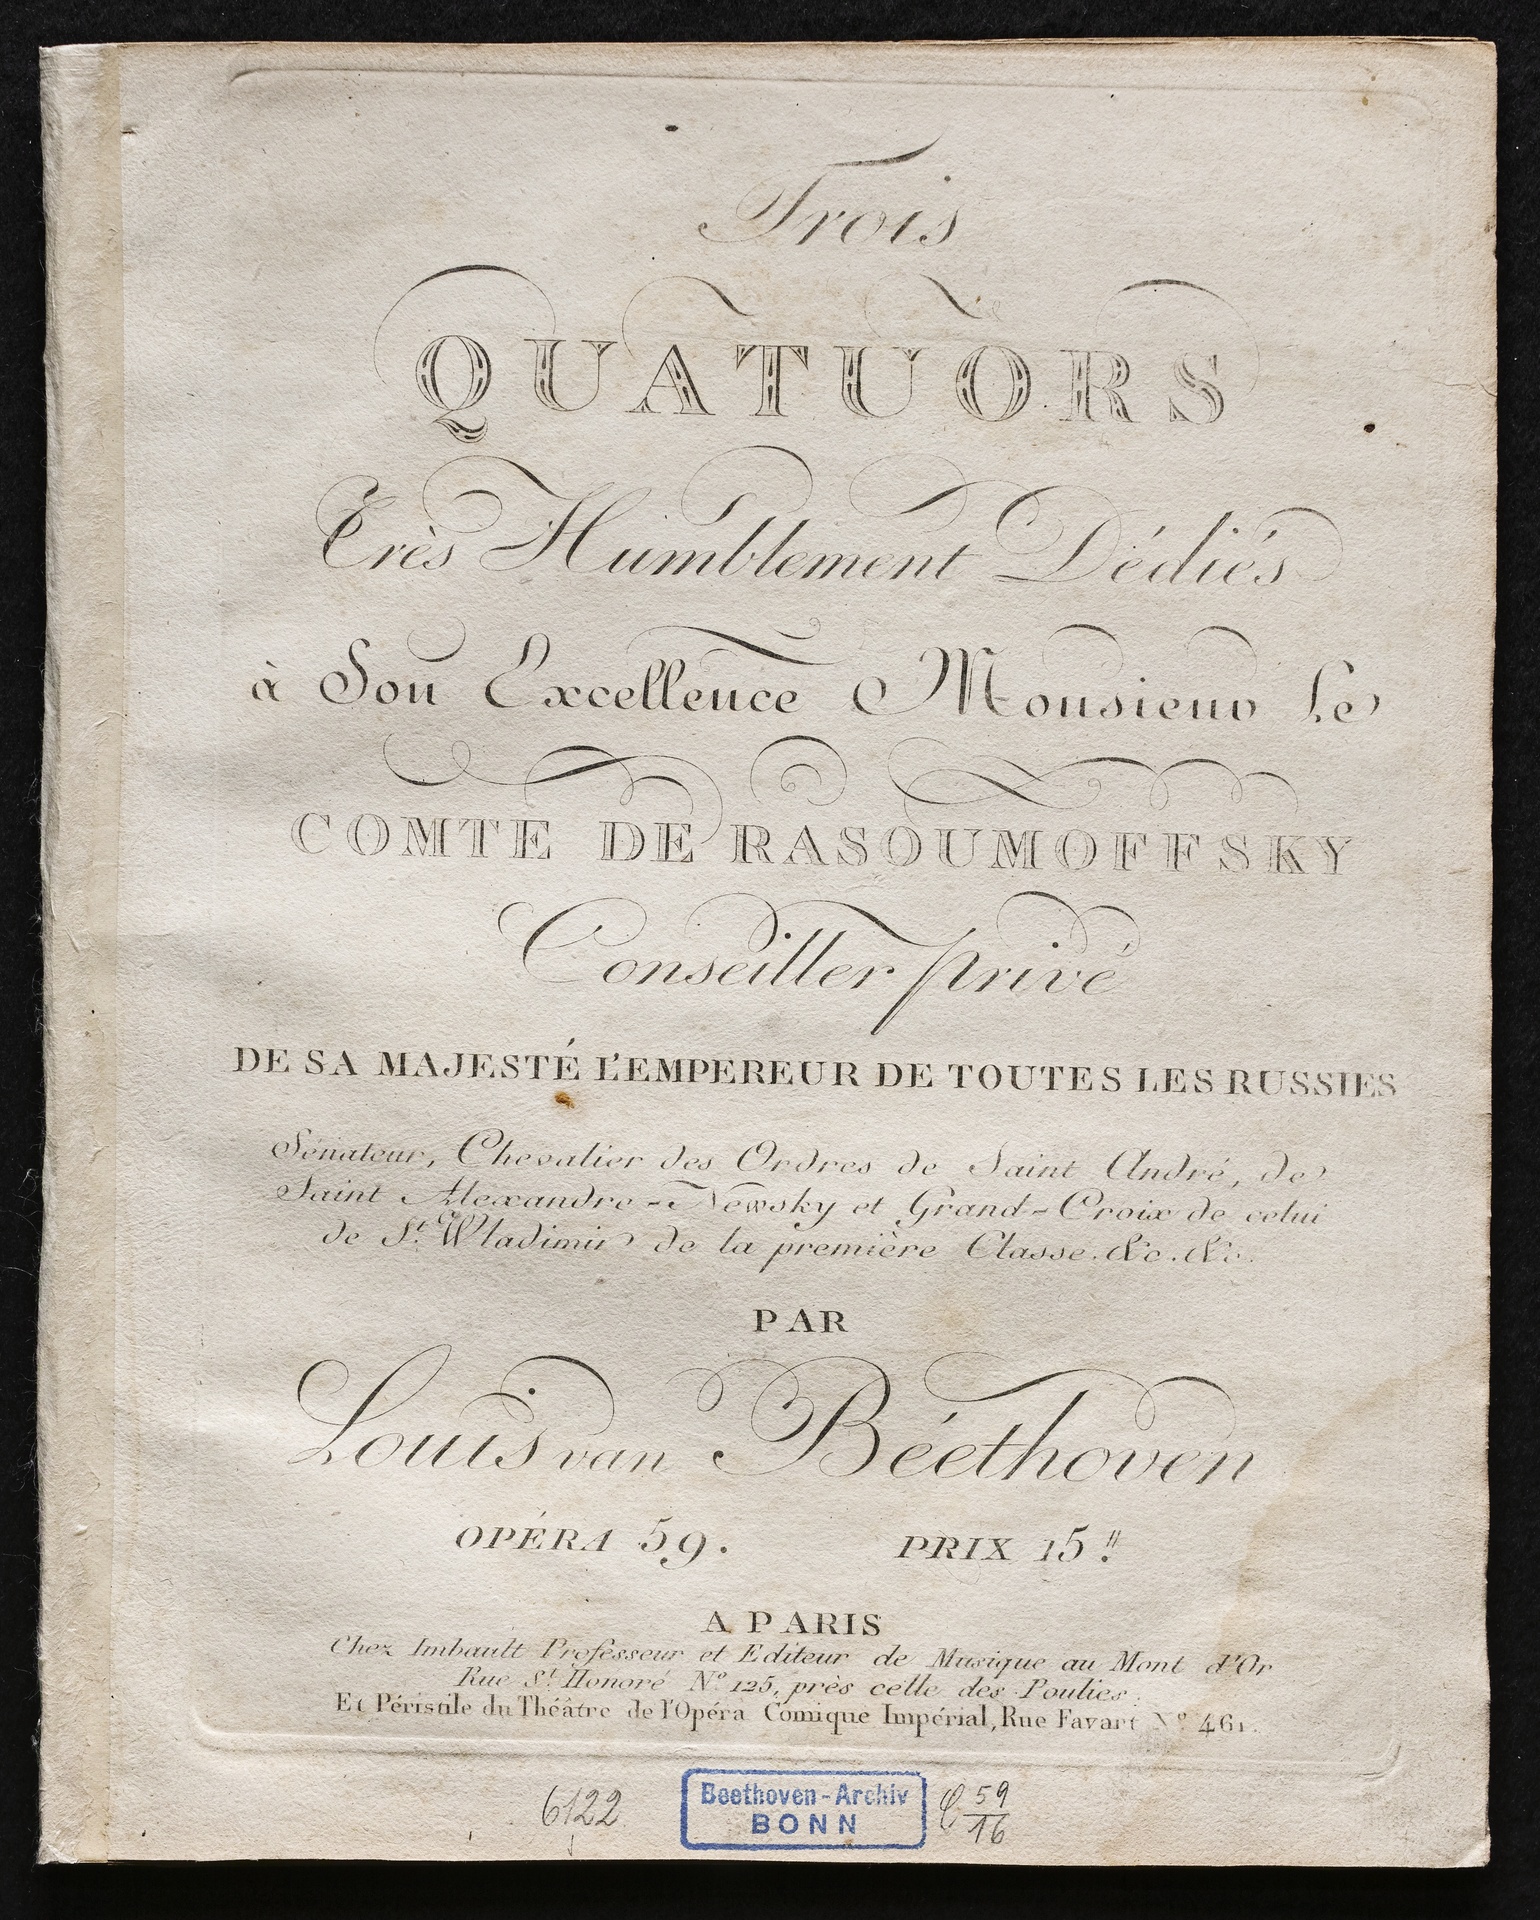 Trois
QUATUORS
Très Humblement Dédiés
à Son Excellence Monsieur Le
COMTE DE RASOUMOFFSKY
Conseiller privé
DE SA MAJESTÉ L'EMPEREUR DE TOUTES LES RUSSIES
Sénateur, Chevalier des Ordres de Saint André, de
Saint Alexandre-Newsky et Grand-Croix de celui
de St. Wladimir de la première Classe. &c. &c.
PAR
Louis van Béethoven
OPÉRA 59. PRIX 15."
A PARIS
Chez Imbault Professeur et Editeur de Musique au Mont d'Or
Rue St. Honoré No. 125, près celle des Poulies.
Et Péristile du Théâtre de l'Opéra Comique Impérial, Rue Favart No. 461.
6122
Beethoven-Archiv
BONN
C 59
16